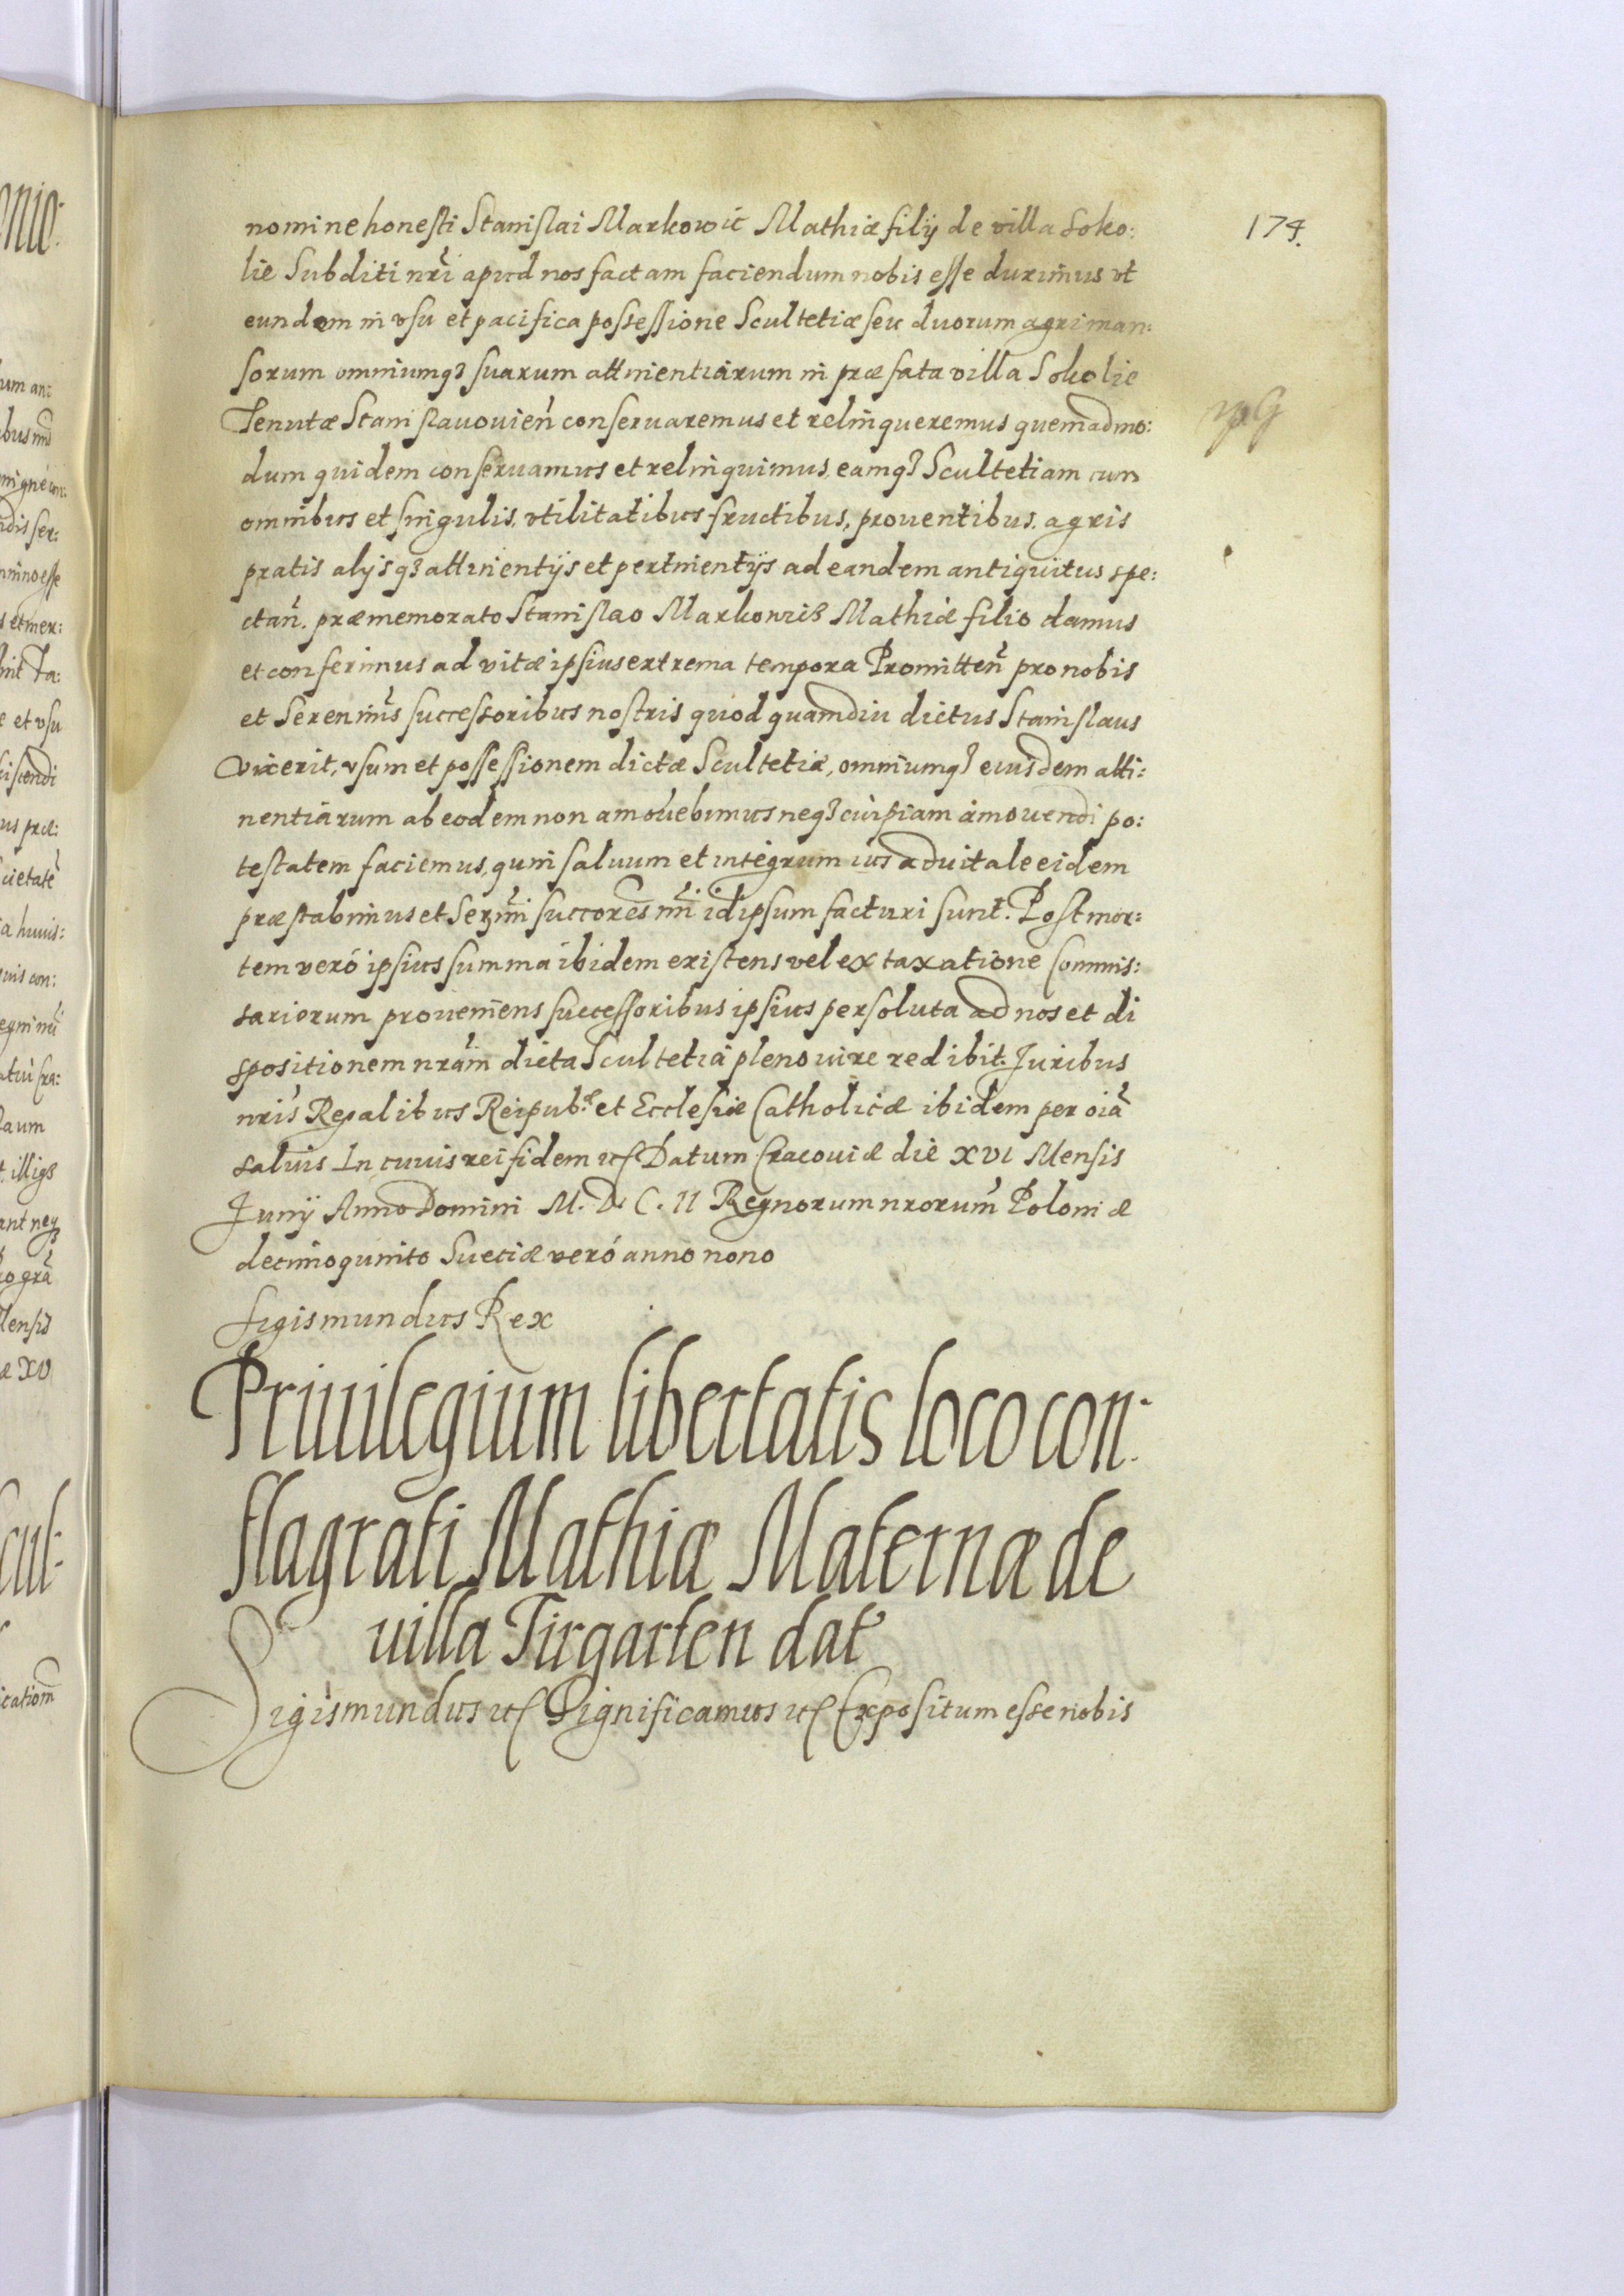 174.
nomine honesti Stanislai Markowic Mathiæ filÿ de villa Soko:
lie Subditi nrĩ apud nos factam faciendum nobis esse duximus vt
eundem in vsu et pacifica possessione Scultetiæ seu duorum agri man:
sorum omniumq3 suarum attinentiarum in præfata villa Sokolie
Tenutæ Stanislauouien̄ conseruaremus et relinqueremus quemadmo:
dum quidem conseruamus et relinquimus, eamq3 Scultetiam cum
omnibus et singulis, vtilitatibus fructibus, prouentibus, agris
pratis alijsq3 attinentijs et pertinentijs ad eandem antiquitus spe:
ctan̄. præmemorato Stanislao Markowic3 Mathiæ filio damus
et conferimus ad vitæ ipsius extrema tempora Promitten̄ pro nobis
et Serenim̄s successoribus nostris quod quamdiu dictus Stanislaus
vixerit, vsum et possessionem dictæ Scultetiæ, omniumq3 eiusdem atti:
nentiarum ab eodem non amouebimus neq3 cuipiam amouendi po:
testatem faciemus, quin saluum et integrum ius aduitale eidem
præstabimus et Serm̄i succorēs nr̄i idipsum facturi sunt. Post mor:
tem veró ipsius summa ibidem existens vel ex taxatione Commis:
sariorum proueniens successoribus ipsius persoluta ad nos et di
spositionem nrām dicta Scultetia pleno iure redibit. Juribus
nrīs Regalibus Reipub.æ et Ecclesiæ Catholicæ ibidem per oiā
saluis In cuius rei fidem etc Datum Cracouiæ die XVI Mensis
Junÿ Anno Domini M. D. C. II Regnorum nrorum̄ Poloniæ
decimoquinto Sueciæ veró anno nono
Sigismundus Rex
Priuilegium libertatis loco con:
flagrati Mathiæ Maternæ de
villa Tirgarten dat
Sigismundus etc Significamus etc Expositum esse nobis